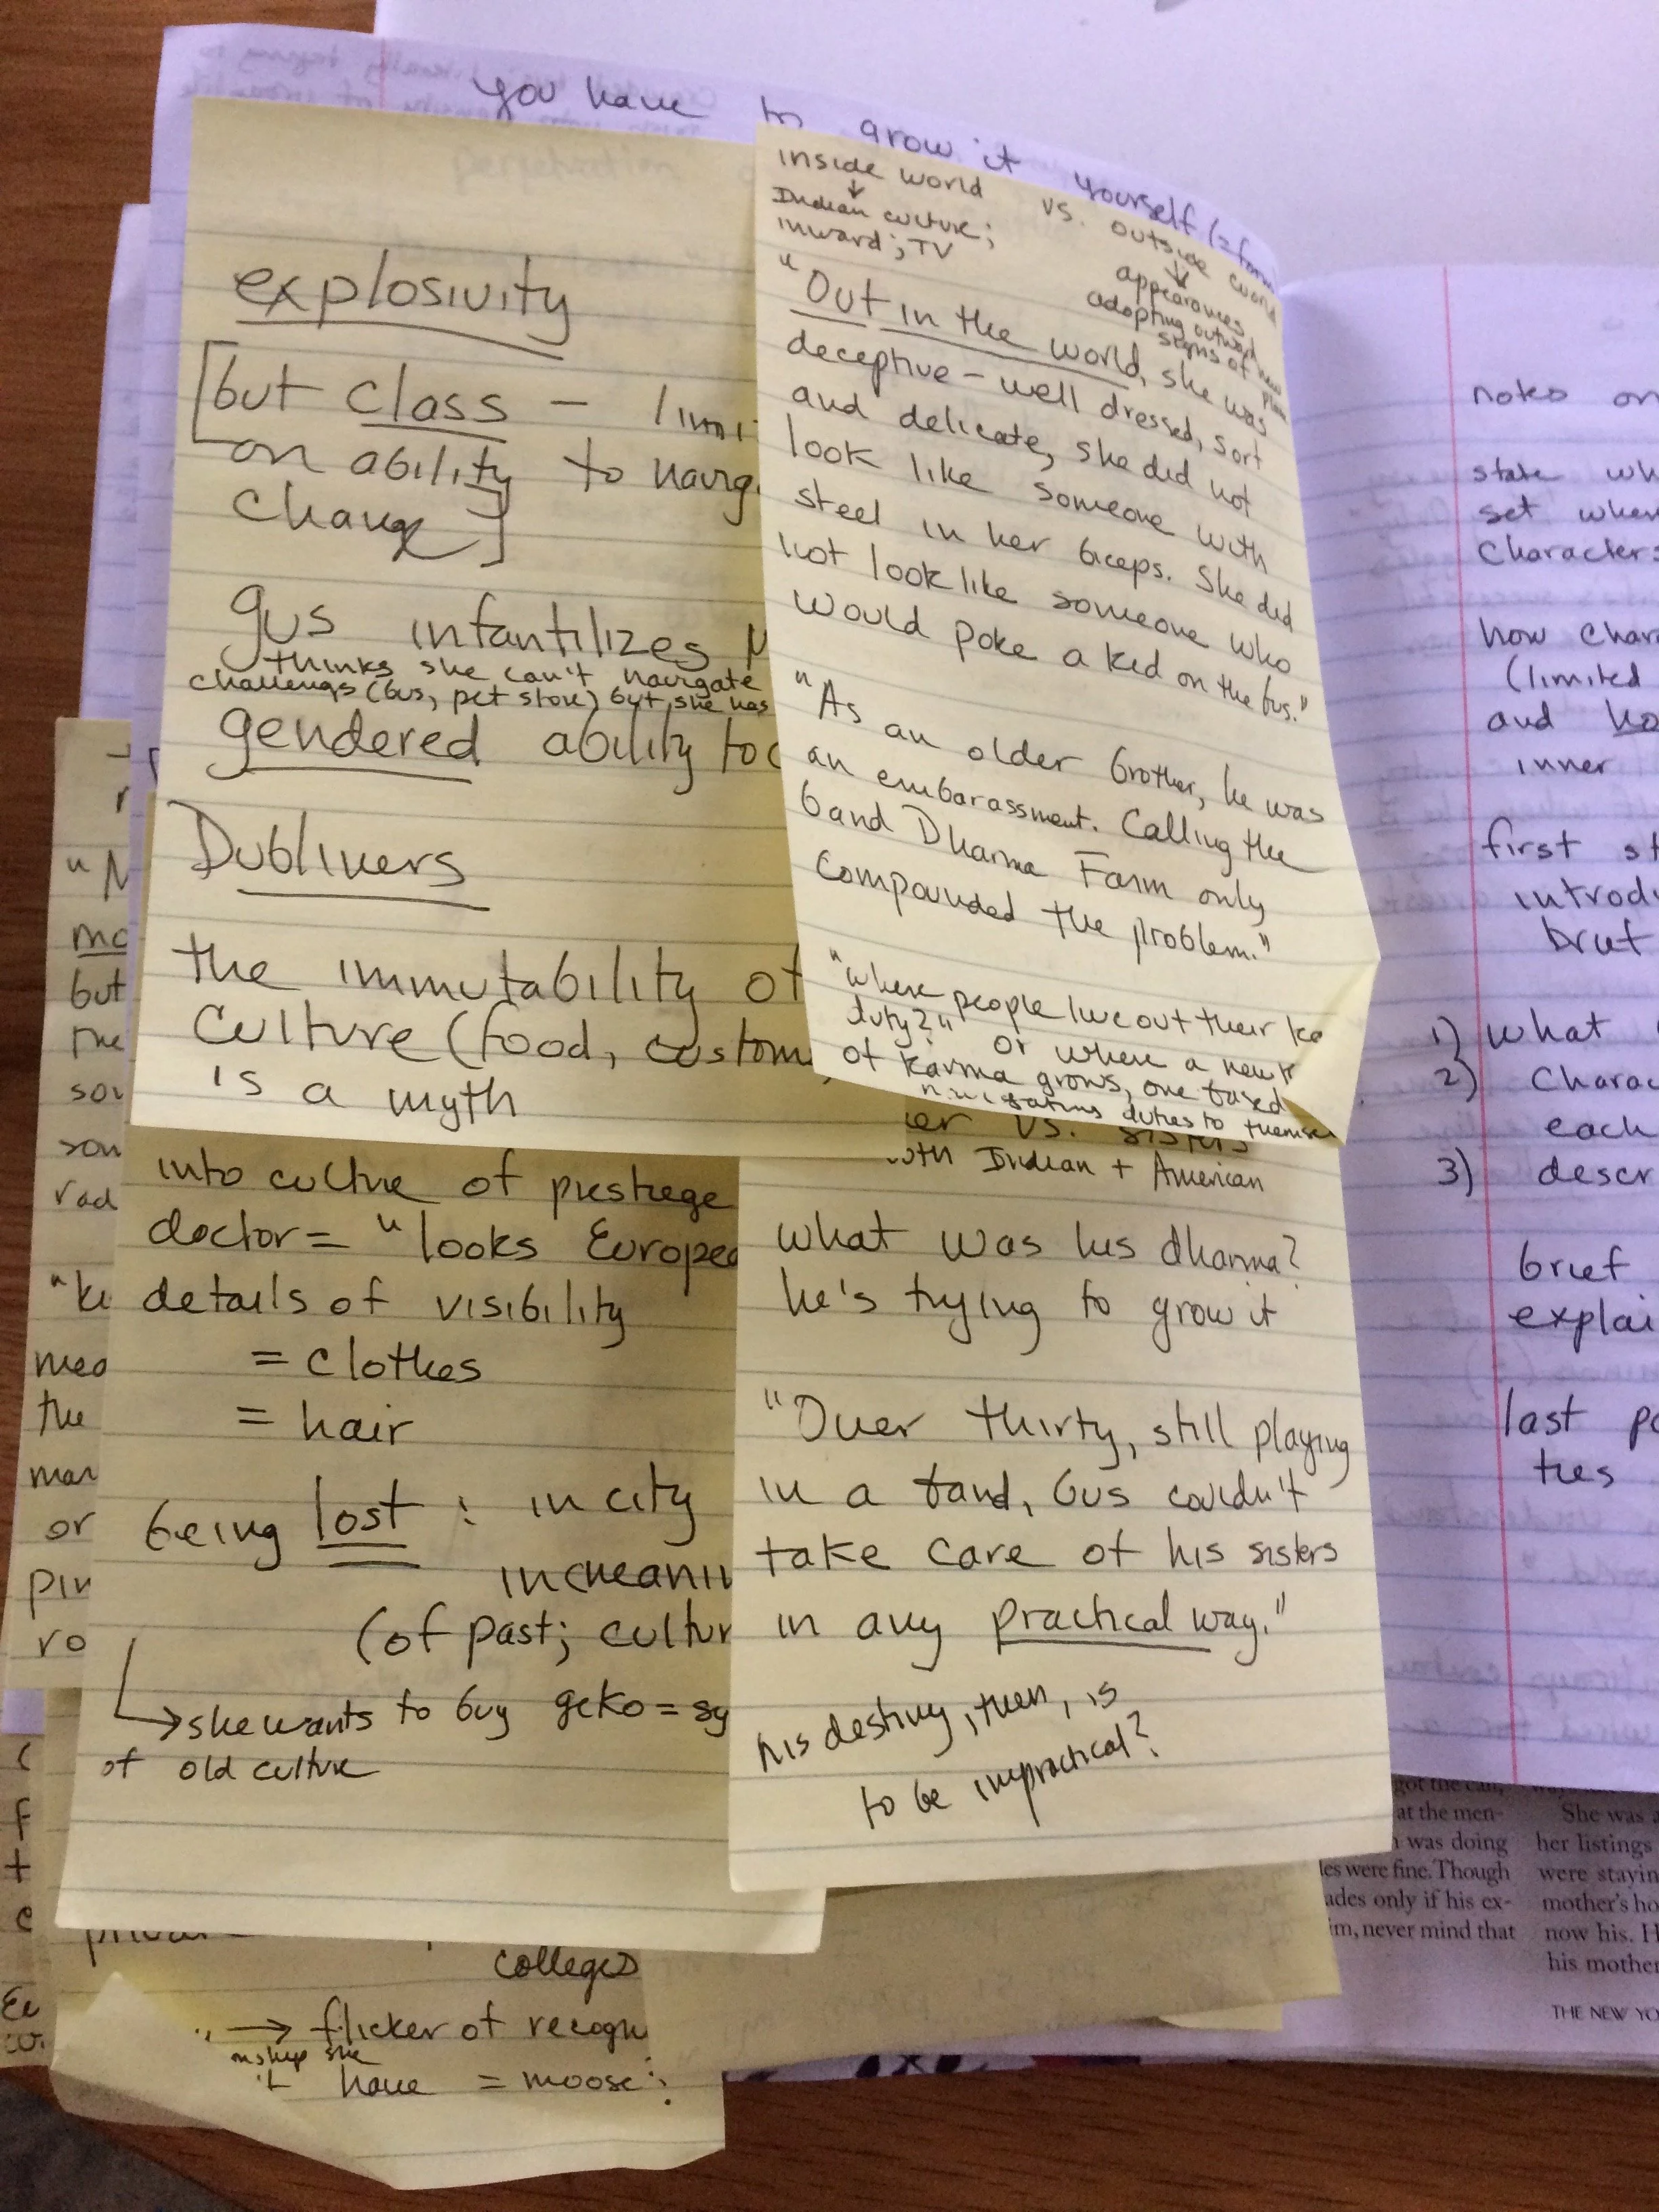 you have to grow it yourself
explosivity
[but class — limi
on ability to navig
change]
gus infantilizes
thinks she can't navigate
challengs (bus, pet store) but she has
gendered ability to
Dubliners
the immutability of
culture (food, custom
is a myth
inside world vs. outside world
Indian culture;
inward; TV
appearances
adopting outward
signs of new
"Out in the world, she was
deceptive – well dressed, sort
and delicate, she did not
look like someone with
steel in her biceps. She did
not look like someone who
would poke a kid on the bus."
"As an older brother, he was
an embarassment. Calling the
band Dharma Farm only
compounded the problem."
"where people live out their
duty?" or where a new
of karma grows, one based
duties to
vs. sisters
Indian + American
what was his dharma?
he's trying to grow it
"Over thirty, still playing
in a band, Gus couldn't
take care of his sisters
in any practical way."
his destiny, then, is
to be impractical?
into culture of prestege
doctor = "looks Europea
details of visibility
= clothes
= hair
being lost : in city
in meanin
(of past; cultur
→ she wants to buy geko = sy
of old culture
colleges
→ flicker of recogn
she
have = moose
but
the
son
rad
mea
the
man
or
pin
ro
notes on
state wh
set when
characters
how char
(limited
and ho
inner
first st
introdu
brut
1) what
2) charac
each
3) descr
brief
explai
last pa
ties
got the call,
at the men-
was doing
les were fine. Though
ades only if his ex-
im, never mind that
She was a
her listings
were stayin
mother's ho
now his. H
his mother
THE NEW YO